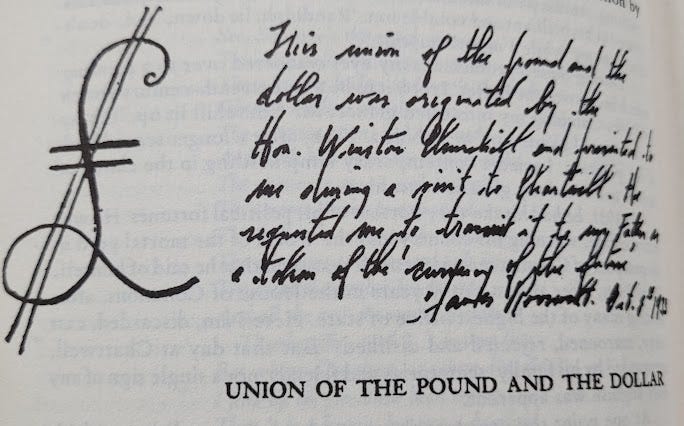 This union of the pound and the
dollar was originated by the
Hon. Winston Churchill and presented to
me during a visit to Chartwell. He
requested me to transmit it to my Father as
a token of the currency of the future"
James Roosevelt. Oct. 8th 1933
UNION OF THE POUND AND THE DOLLAR